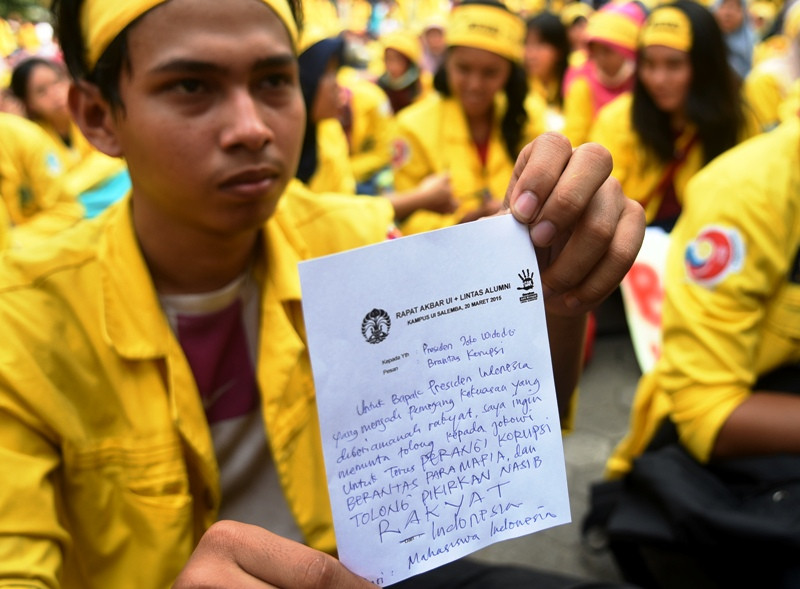 RAPAT AKBAR UI + LINTAS ALUMNI
KAMPUS UI SALEMBA, 20 MARET 2015
Kepada Yth : Presiden Joko Widodo
Pesan : Brantas Korupsi
Untuk Bapak Presiden Indonesia
yang menjadi pemegang kekuasaan yang
diberi amanah rakyat, saya ingin
meminta tolong kepada jokowi
Untuk Terus PERANGI KORUPSI
BERANTAS PARA MAFIA, dan
TOLONG PIKIRKAN NASIB
RAKYAT
Indonesia
: Mahasiswa Indonesia